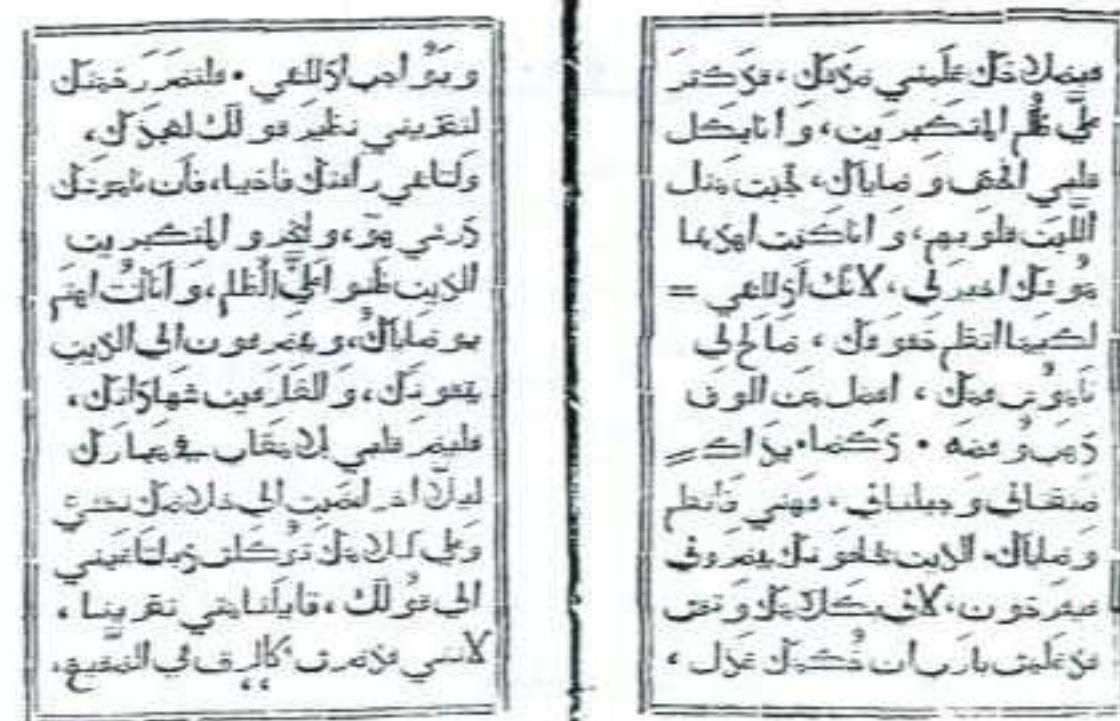 فبصلاحك علمني حقك، فقد كتر
علي ظلم المتكبرين، وانا بكل
قلبي افحص وصاياك، تجبنت مثال
اللبن قلوبهم، وانا كنت اهذ بها
اخير لي، لانك اذللتني =
لكيما اتعلم حقوقك، صالح لي
ناموس فمك، افضل من الوف
ذهب وفضه · يداك =
صنعتاني وجبلتاني، فهمني فأتعلم
وصاياك. الذين يخافونك يبصروني
فيفرحون، لاني بكلامك وتقت
قد علمت يارب ان حكمك عدل،
وبحق اذللتني · فلتصر رحمتك
لتعزيني نظير قولك لعبدك،
ولتاتي رأفتك فاحيا، فان ناموسك
درسي هو، المتكبرين
الذين الظلم، وانا كنت اهتم
بوصاياك، الي الذين
يتقونك، والعارفين شهاداتك،
فليصر قلبي بلا في
ليلا الي خلاصك نفسي
وعلي كلامك توكلت عيني
الي قولك، متي تعزينا،
لانني قد صرت كالزق في الصقيع،